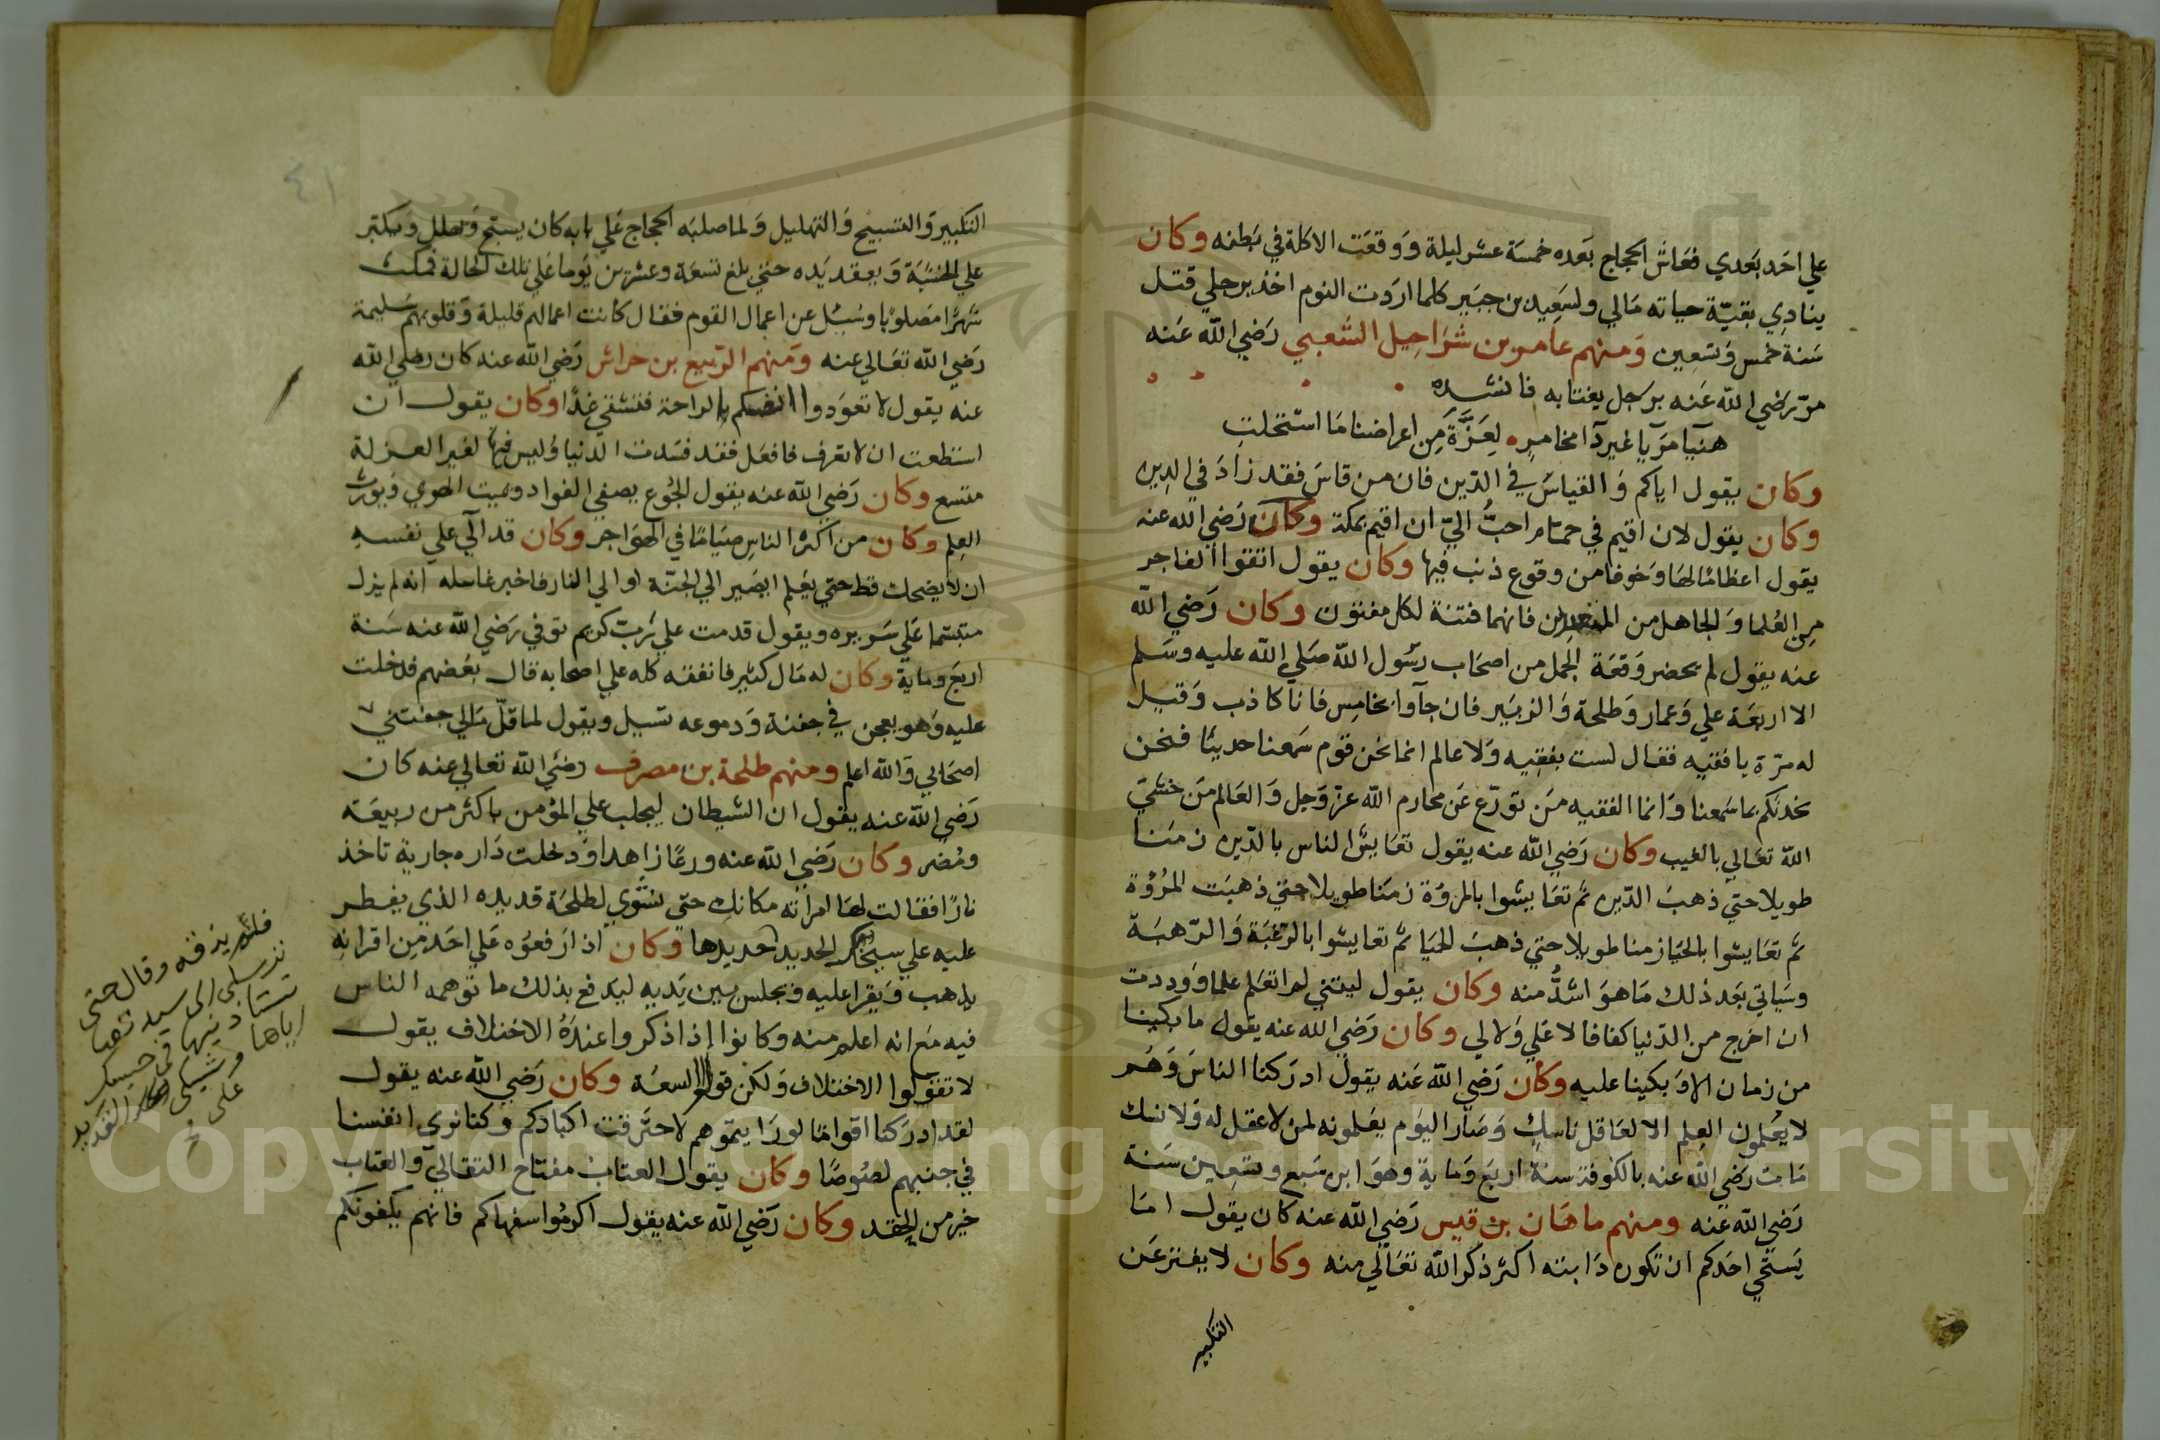 علي احد بعدي فعاش الحجاج بعده خمسة عشر ليلة ووقعت الاكلة في بطنه وكان
ينادي بقية حياته مالي ولسعيد بن جبير كلما اردت النوم اخذ برجلي قتل
سنة خمس وتسعين ومنهم عامر بن شراحيل الشعبي رضي الله عنه
مرّ رضي الله عنه برجل يغتابه فانشده
هنيا مريا غير دآ مخامر لعزّة من اعراضنا ما استحلت
وكان يقول اياكم والقياس في الدين فان من قاس فقد زاد في الدين
وكان يقول لان اقيم في حمام احبُّ اليّ ان اقيم بمكة وكان رضي الله عنه
يقول اعظاما لها وخوفا من وقوع ذنب فيها وكان يقول اتقوا الفاجر
من العلما والجاهل من فانهما فتنة لكل مفتون وكان رضي الله
عنه يقول لم يحضر وقعة الجمل من اصحاب رسول الله صلي الله عليه وسلم
الا اربعة علي وعمار وطلحة والزبير فان جآوا بخامس فانا كاذب وقيل
له مرّة يا فقيه فقال لست بفقيه ولا عالم انما نحن قوم سمعنا حديثا فنحن
نحدثكم بما سمعنا وانما الفقيه من تورّع عن محارم الله عز وجل والعالم من خشي
الله تعالي بالغيب وكان رضي الله عنه يقول تعايش الناس بالدين زمنا
طويلا حتي ذهب الدين ثم تعايشوا بالمروة زمنا طويلا حتي ذهبت المروة
ثم تعايشوا بالحيا زمنا طويلا حتي ذهب الحيا ثم تعايشوا بالرغبة والرهبة
وسياتي بعد ذلك ما هو اشدُّ منه وكان يقول ليتني لم اتعلم علما ووددت
ان اخرج من الدنيا كفافا لا علي ولا لي وكان رضي الله عنه يقول ما بكينا
من زمان الا وبكينا عليه وكان رضي الله عنه يقول ادركنا الناس وهم
لا يعلمون العلم الا لعاقل ناسك وصار اليوم يعلمونه لمن لا عقل له ولا نسك
مات رضي الله عنه بالكوفة سنة اربع وماية وهو ابن سبع وتسعين سنة
رضي الله عنه ومنهم ماهان بن قيس رضي الله عنه كان يقول اما
يستحي احدكم ان تكون دابته اكثر ذكر الله تعالي منه وكان لا يفتر عن
التكبير
٤١
التكبير والتسبيح والتهليل ولما صلبه الحجاج علي بابه كان يسبح ويهلل ويكبر
علي الخشبة ويعقد يده حتي بلغ تسعة وعشرين يوما علي تلك الحالة فمكث
شهرًا مصلوبا وسئل عن اعمال القوم فقال كانت اعمالهم قليلة وقلوبهم سليمة
رضي الله تعالي عنه ومنهم الربيع بن حراش رضي الله عنه كان رضي الله
عنه يقول لا تعودوا انفسكم بالراحة فتشقي غدًا وكان يقول ان
استطعت ان لا تعرف فافعل فقد فسدت الدنيا وليس فيها لغير العزلة
متسع وكان رضي الله عنه يقول الجوع يصفي الفواد ويميت الهوي ويورث
العلم وكان من اكثر الناس صياما في الهواجر وكان قد آلي علي نفسه
ان لا يضحك قط حتي يعلم ايصير الي الجنة او الي النار فاخبر غاسله انه لم يزل
متبسما علي سريره ويقول قدمت علي رب كريم توفي رضي الله عنه سنة
اربع وماية وكان له مال كثير فانفقه كله علي اصحابه قال بعضهم فدخلت
عليه وهو يعجن في جفنة ودموعه تسيل ويقول لما قلّ مالي جفتني
اصحابي والله اعلم ومنهم طلحة بن مصرف رضي الله تعالي عنه كان
رضي الله عنه يقول ان الشيطان ليجلب علي المؤمن باكثر من ربيعة
ومضر وكان رضي الله عنه ورعًا زاهدا ودخلت داره جارية تاخذ
نارًا فقالت لها امراته مكانك حتي نشوي لطلحة قديده الذي يفطر
عليه علي الحديد حديدها وكان اذا رفعوه علي احد من اقرانه
يذهب ويقرا عليه ويجلس بين يديه ليدفع بذلك ما توهمه الناس
فيه مع انه اعلم منه وكانوا اذا ذكروا عنده الاختلاف يقول
لا تقولوا الاختلاف ولكن قولوا السعة وكان رضي الله عنه يقول
لقد ادركنا اقواما لو رايتموهم لاحترقت اكبادكم وكنا نري انفسنا
في جنبهم لصوصًا وكان يقول العتاب مفتاح التقالي والعتاب
خير من الحقد وكان رضي الله عنه يقول اكرموا سفهاكم فانهم يكفونكم
فلم يذقه وقال حتى
ترسلي الى سيدتها
تستاذنيها في حبسك
اياها
على
Copyright © King Saud University